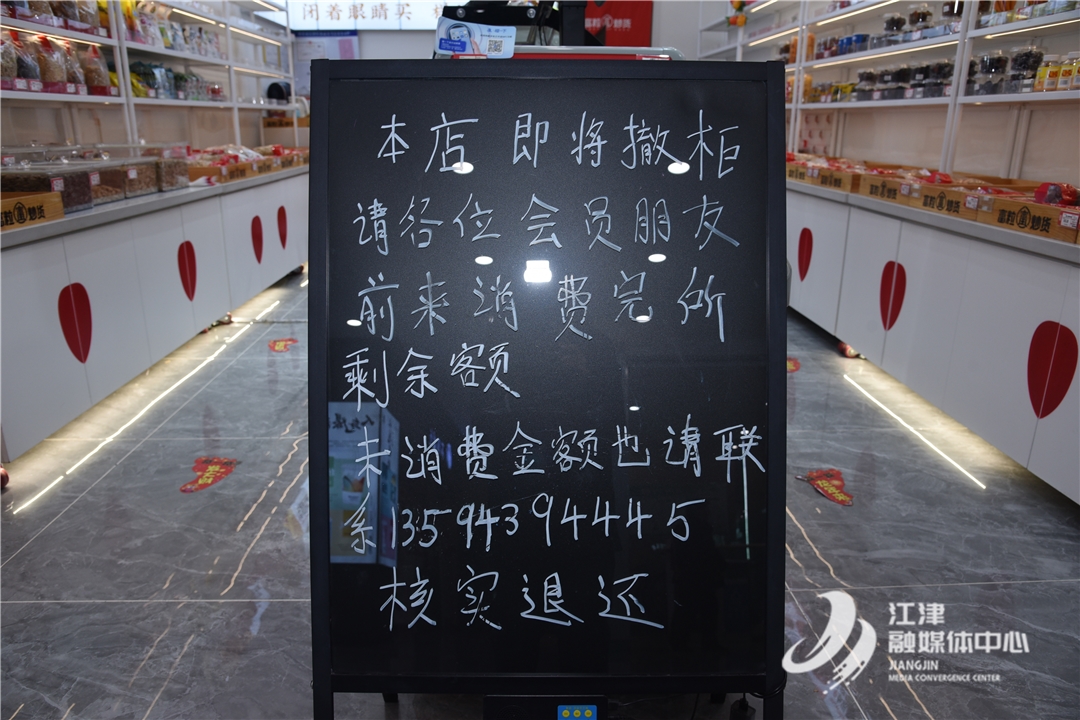 闭着眼睛买
本店即将撤柜
请各位会员朋友
前来消费完所
剩余额
未消费金额也请联
系13594394445
核实退还
江津
融媒体中心
JIANGJIN
MEDIA CONVERGENCE CENTER